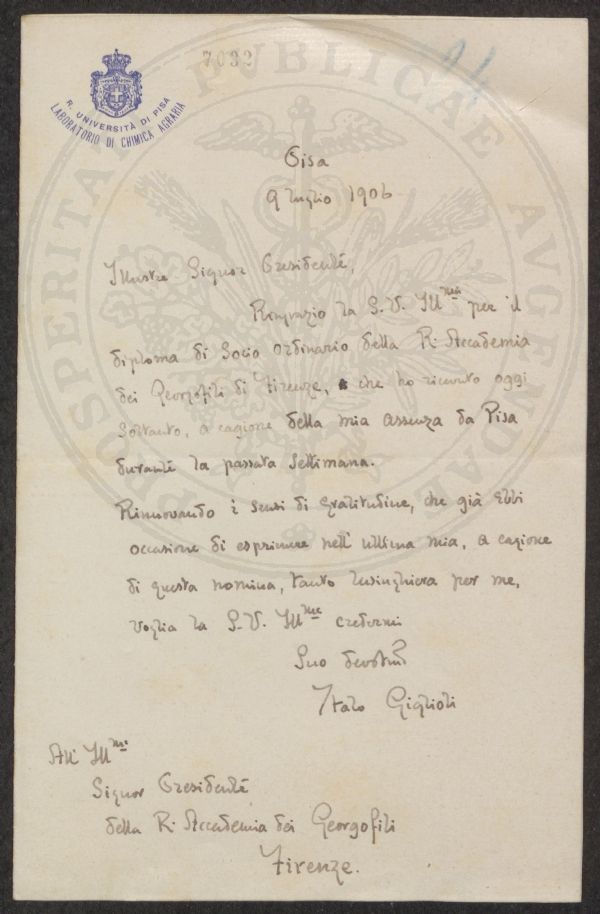 7032
R. UNIVERSITÀ DI PISA
LABORATORIO DI CHIMICA AGRARIA
PROSPERITATI PVBLICAE AVGENDAE
Pisa
9 luglio 1906
Illustre Signor Presidente,
Ringrazio la S. V. Ill.ma per il
diploma di Socio ordinario della R. Accademia
dei Georgofili di Firenze, che ho ricevuto oggi
soltanto, a cagione della mia assenza da Pisa
durante la passata settimana.
Rinnovando i sensi di gratitudine, che già ebbi
occasione di esprimere nell' ultima mia, a cagione
di questa nomina, tanto lusinghiera per me,
voglia la S. V. Ill.ma credermi
Suo devotmo
Italo Giglioli
All' Ill.mo
Signor Presidente
della R. Accademia dei Georgofili
Firenze.